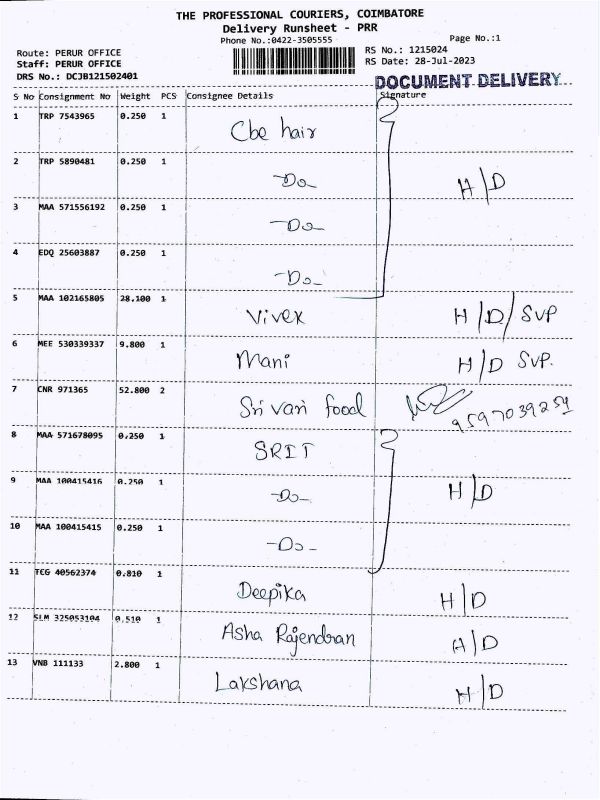 THE PROFESSIONAL COURIERS, COIMBATORE
Delivery Runsheet - PRR
Phone No.:0422-3505555
Page No.:1
Route: PERUR OFFICE
RS No.: 1215024
Staff: PERUR OFFICE
RS Date: 28-Jul-2023
DRS No.: DCJB121502401
DOCUMENT DELIVERY
S No Consignment No Weight PCS Consignee Details Signature
1 TRP 7543965 0.250 1 Cbe hair
2 TRP 5890481 0.250 1 -Do- H/D
3 MAA 571556192 0.250 1 -Do-
4 EDQ 25603887 0.250 1 -Do-
5 MAA 102165805 28.100 1 Vivek H/D/SVP
6 MEE 530339337 9.800 1 Mani H/D SVP.
7 CNR 971365 52.800 2 Sri vari food 9597039259
8 MAA 571678095 0.250 1 SRIT
9 MAA 100415416 0.250 1 -Do- H/D
10 MAA 100415415 0.250 1 -Do-
11 TCG 40562374 0.810 1 Deepika H/D
12 SLM 325053104 0.510 1 Asha Rajendran H/D
13 VNB 111133 2.800 1 Lakshana H/D